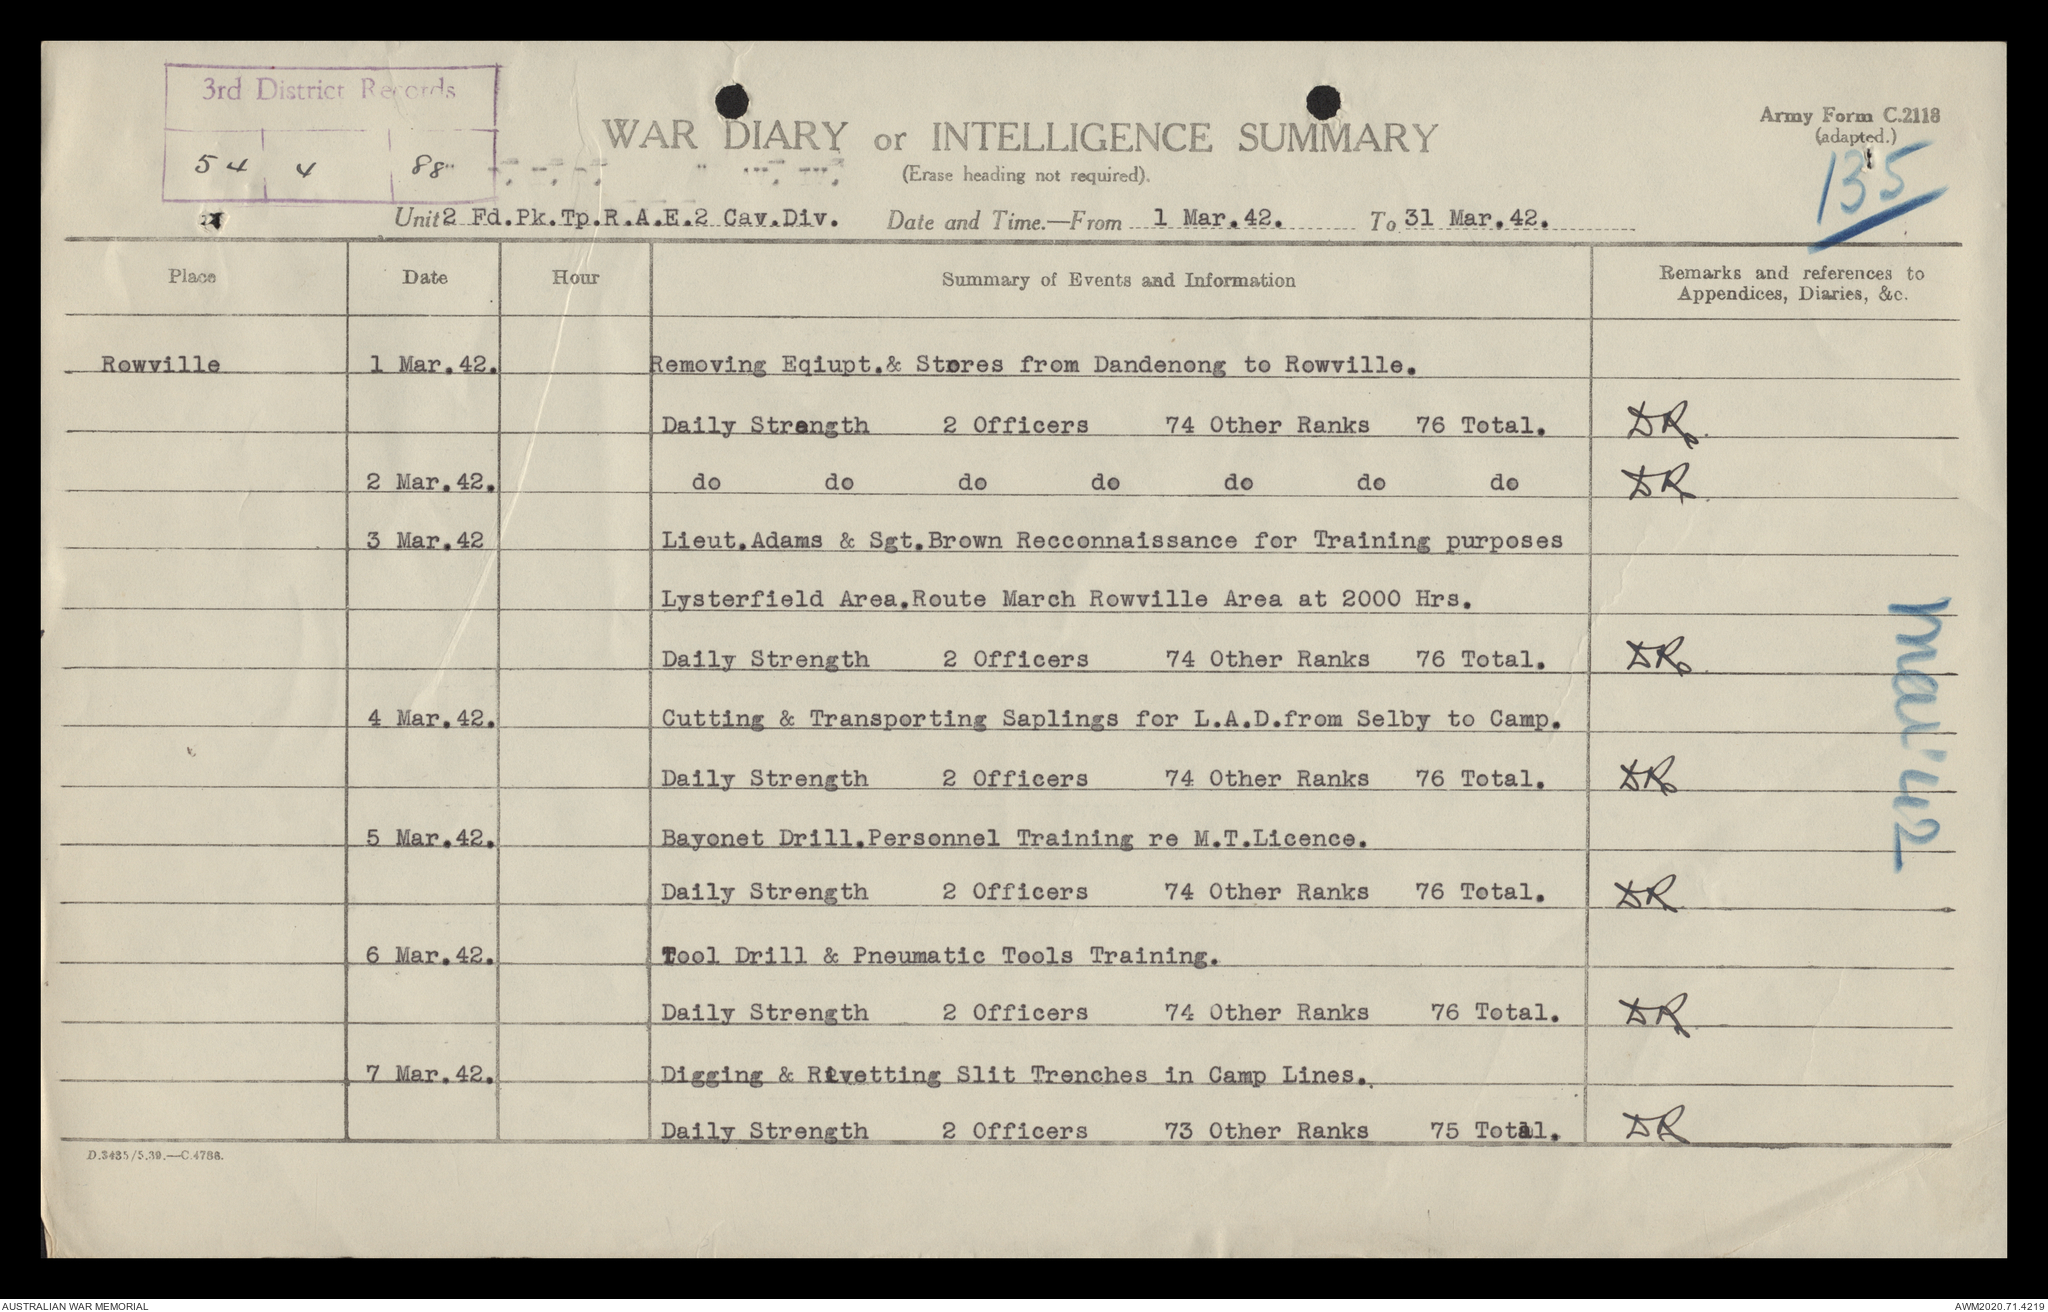 3rd District Records
54 4 88
WAR DIARY or INTELLIGENCE SUMMARY
(Erase heading not required).
Army Form C.2118
(adapted.)
135
Unit 2 Fd.Pk.Tp.R.A.E.2 Cav.Div. Date and Time.—From 1 Mar.42. To 31 Mar.42.
Place Date Hour Summary of Events and Information Remarks and references to
Appendices, Diaries, &c.
Rowville 1 Mar.42. Removing Eqiupt.& Stores from Dandenong to Rowville.
Daily Strength 2 Officers 74 Other Ranks 76 Total. DR
2 Mar.42. do do do do do do do DR
3 Mar.42 Lieut.Adams & Sgt.Brown Recconnaissance for Training purposes
Lysterfield Area.Route March Rowville Area at 2000 Hrs.
Daily Strength 2 Officers 74 Other Ranks 76 Total. DR
4 Mar.42. Cutting & Transporting Saplings for L.A.D.from Selby to Camp.
Daily Strength 2 Officers 74 Other Ranks 76 Total. DR
5 Mar.42. Bayonet Drill.Personnel Training re M.T.Licence.
Daily Strength 2 Officers 74 Other Ranks 76 Total. DR
6 Mar.42. Tool Drill & Pneumatic Tools Training.
Daily Strength 2 Officers 74 Other Ranks 76 Total. DR
7 Mar.42. Digging & Rivetting Slit Trenches in Camp Lines.
Daily Strength 2 Officers 73 Other Ranks 75 Total. DR
Mar '42
D.3435/5.39.—C.4786.
AUSTRALIAN WAR MEMORIAL AWM2020.71.4219